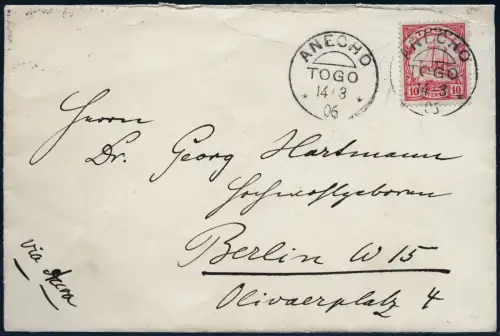 ANECHO
TOGO
14/3
06
ANECHO
TOGO
14/3
10 10
Herrn
Dr. Georg Hartmann
Hochwohlgeboren
Berlin W 15
Olivaerplatz 4
via